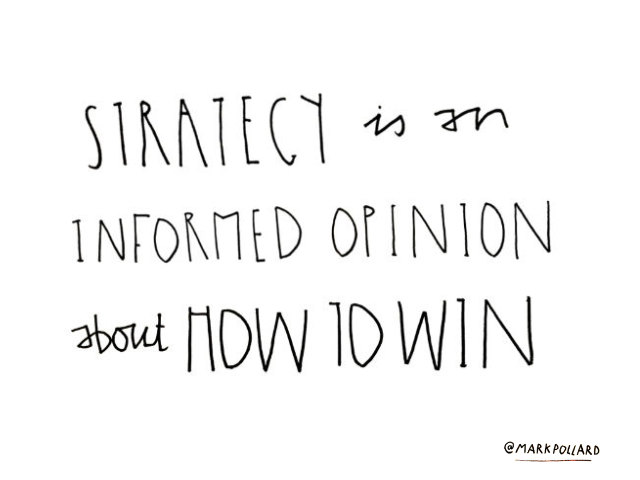 STRATEGY is an
INFORMED OPINION
about HOW TO WIN
@MARKPOLLARD